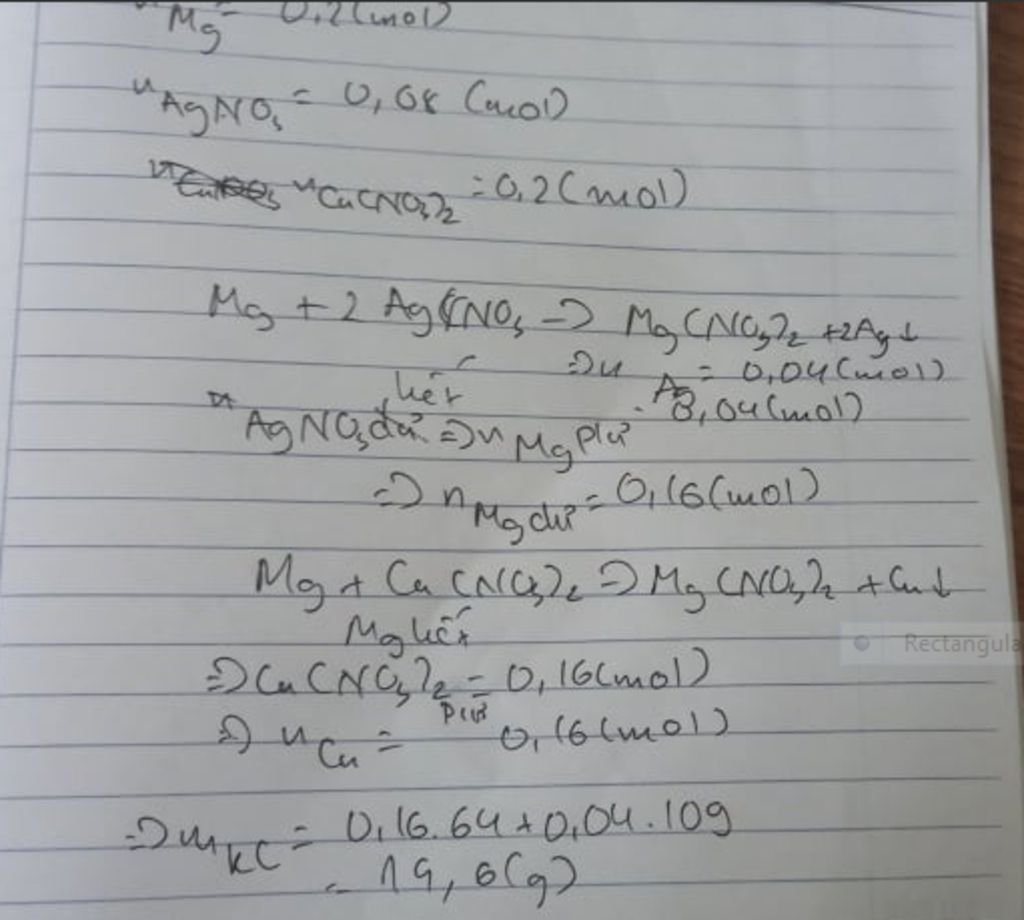 nMg = 0,2(mol)
nAgNO3 = 0,08 (mol)
nCu(NO3)2 = 0,2(mol)
Mg + 2 AgNO3 -> Mg(NO3)2 + 2Ag↓
=> nAg = 0,04(mol)
hết
nAgNO3 dư => nMg pứ = 0,04(mol)
=> nMg dư = 0,16(mol)
Mg + Cu(NO3)2 => Mg(NO3)2 + Cu↓
Mg hết
Rectangula
=> Cu(NO3)2 pứ = 0,16(mol)
=> nCu = 0,16(mol)
=> mKL = 0,16.64 + 0,04.109
= 19,6(g)